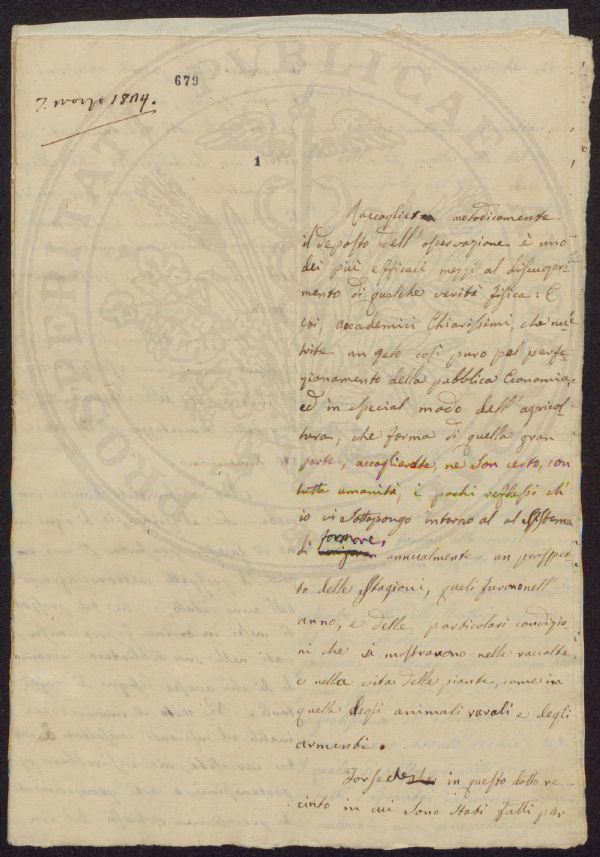 679
7. marzo 1814.
1
PROSPERITATI PUBLICAE
Raccoglier metodicamente
il deposto dell' osservazione è uno
dei più efficaci mezzi al discopri-
mento di qualche verità fisica: E
voi, accademici Chiarissimi, che nu-
trite un zelo così puro pel perfe-
zionamento della pubblica Economia,
ed in special modo dell' agricol-
tura, che forma di quella gran
parte, accoglierete, ne son certo, con
tutta umanità, i pochi reflessi ch'
io vi sottopongo intorno al al Sistema
di formare,
annualmente un prospet-
to delle Stagioni, quali furono nell'
anno, e delle particolari condizio-
ni che si mostrarono nelle raccolte
e nella vita delle piante, come in
quella degli animali rurali e degli
armenti.
Forse in questo dotto re-
cinto in cui sono stati fatti per